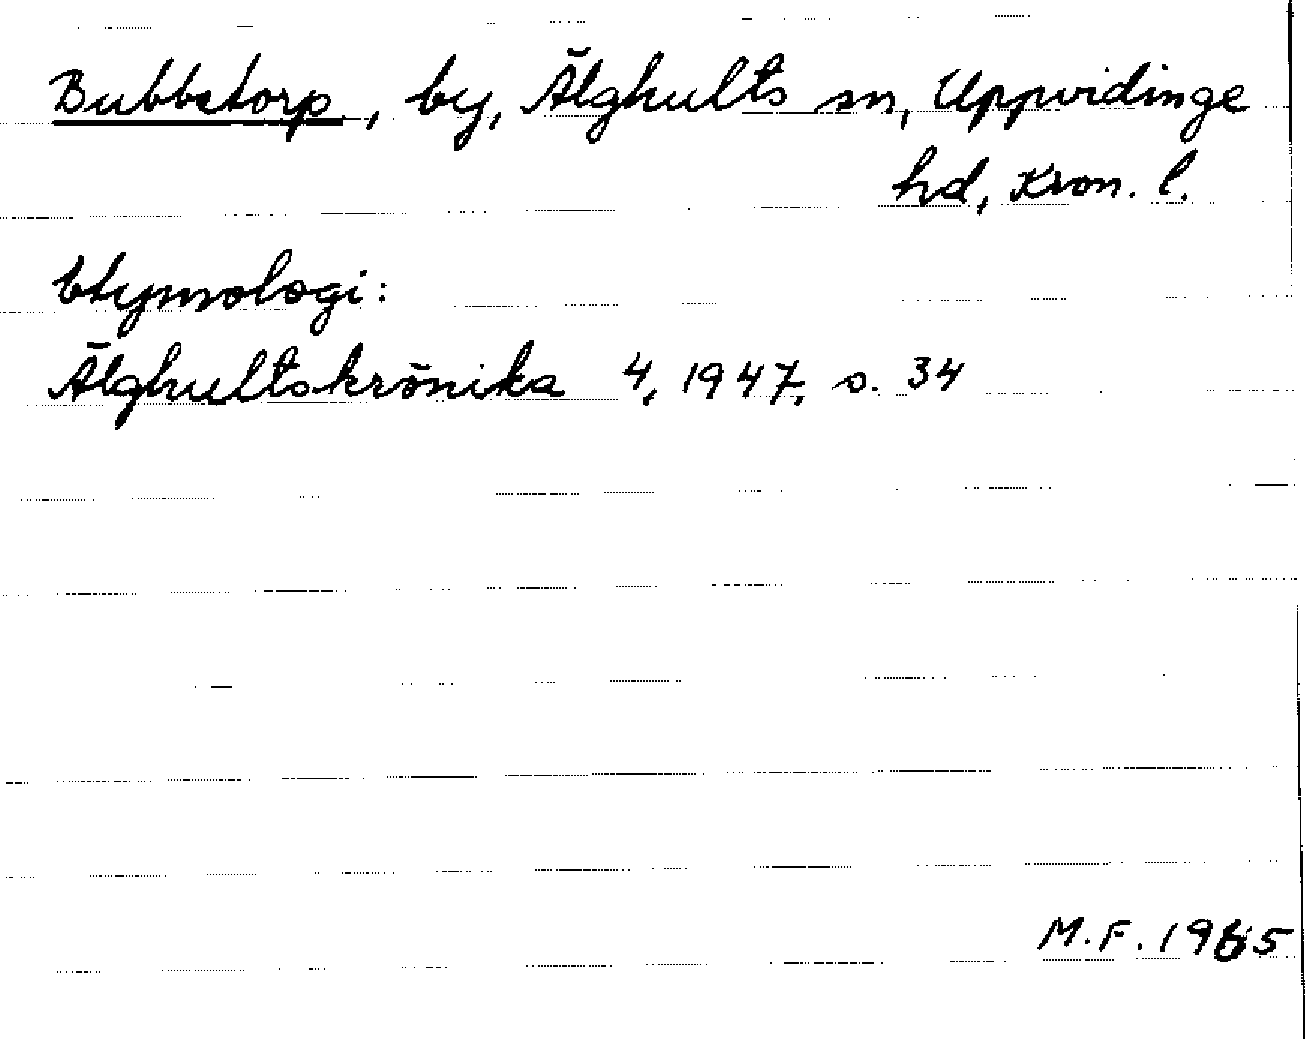 Bubbetorp, by, Älghults sn, Uppvidinge
hd, Kron. l.
Etymologi:
Älghultskrönika 4, 1947, s. 34
M.F. 1965